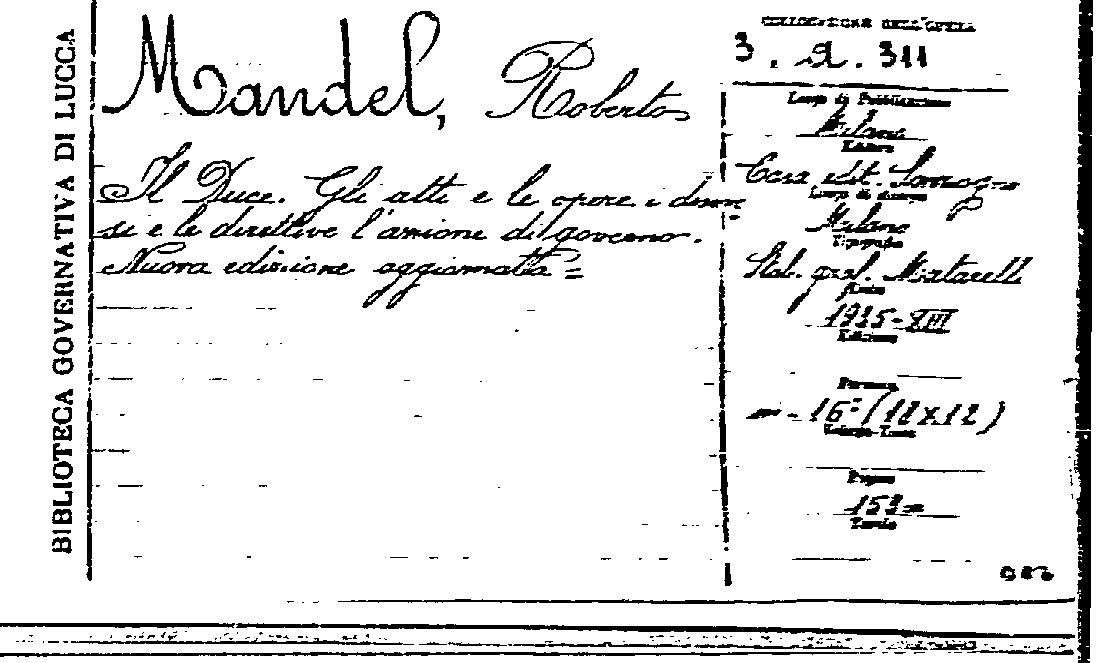 BIBLIOTECA GOVERNATIVA DI LUCCA
Mandel, Roberto
Il Duce. Gli atti e le opere i discor-
si e le direttive l'amione di governo.
Nuova edizione aggiornata =
COLLOCAZIONE DELL'OPERA
3. 2. 311
Luogo di Pubblicazione
Milano
Editore
Casa edit. Sonzogno
Luogo di stampa
Milano
Tipografia
Stab. graf. Matarelli
Anno
1935-XIII
Edizione
Formato
16° (12x12)
Volume-Tomo
Pagine
153=
Tavole